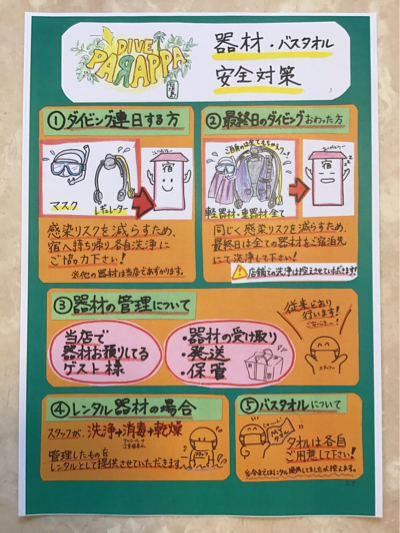 DIVE
PARAPPA
器材・バスタオル
安全対策
①ダイビング連日する方
マスク
レギュレーター
宿
感染リスクを減らすため、
宿へ持ち帰り各自洗浄に
ご協力下さい!
※他の器材は当店であずかります。
②最終日のダイビングおわった方
軽器材・重器材全て
宿
同じく感染リスクを減らすため、
最終日は全ての器材をご宿泊先
にて洗浄して下さい!
店舗での洗浄は控えさせていただきます!
③器材の管理について
当店で
器材お預りしてる
ゲスト様
・器材の受け取り
・発送
・保管
従来どおり
行います!
スタッフ
④レンタル器材の場合
スタッフが、洗浄→消毒→乾燥
管理したものを
レンタルとして提供させていただきます。
⑤バスタオルについて
タオルは各自
ご用意して下さい!